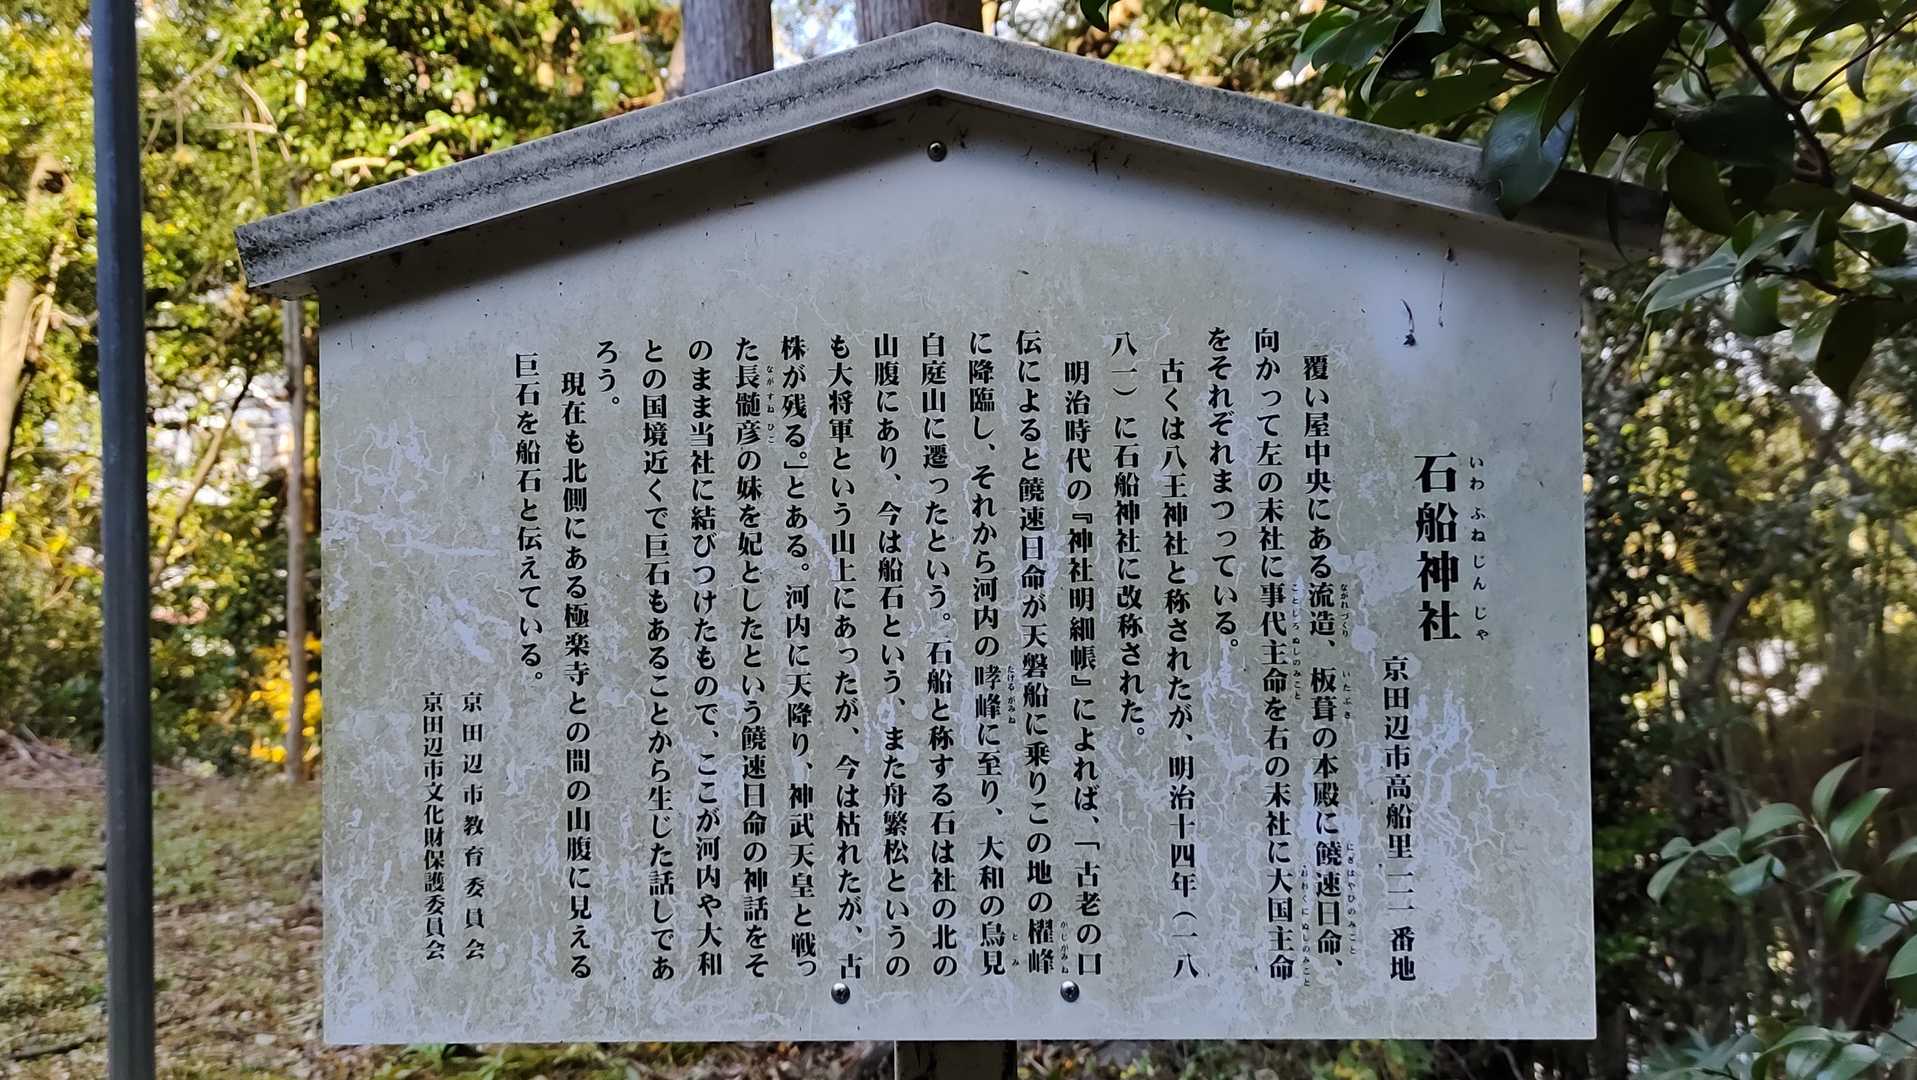 石船神社
いわふねじんじゃ
京田辺市高船里二二番地
覆い屋中央にある流造、板葺の本殿に饒速日命、
ながれづくり いたぶき にぎはやひのみこと
向かって左の末社に事代主命を右の末社に大国主命
ことしろぬしのみこと おおくにぬしのみこと
をそれぞれまつっている。
古くは八王神社と称されたが、明治十四年（一八
八一）に石船神社に改称された。
明治時代の『神社明細帳』によれば、「古老の口
伝によると饒速日命が天磐船に乗りこの地の櫂峰
かじがみね
に降臨し、それから河内の哮峰に至り、大和の鳥見
たけるがみね とみ
白庭山に遷ったという。石船と称する石は社の北の
山腹にあり、今は船石という、また舟繋松というの
も大将軍という山上にあったが、今は枯れたが、古
株が残る。」とある。河内に天降り、神武天皇と戦っ
た長髄彦の妹を妃としたという饒速日命の神話をそ
ながすねひこ
のまま当社に結びつけたもので、ここが河内や大和
との国境近くで巨石もあることから生じた話しであ
ろう。
現在も北側にある極楽寺との間の山腹に見える
巨石を船石と伝えている。
京田辺市教育委員会
京田辺市文化財保護委員会